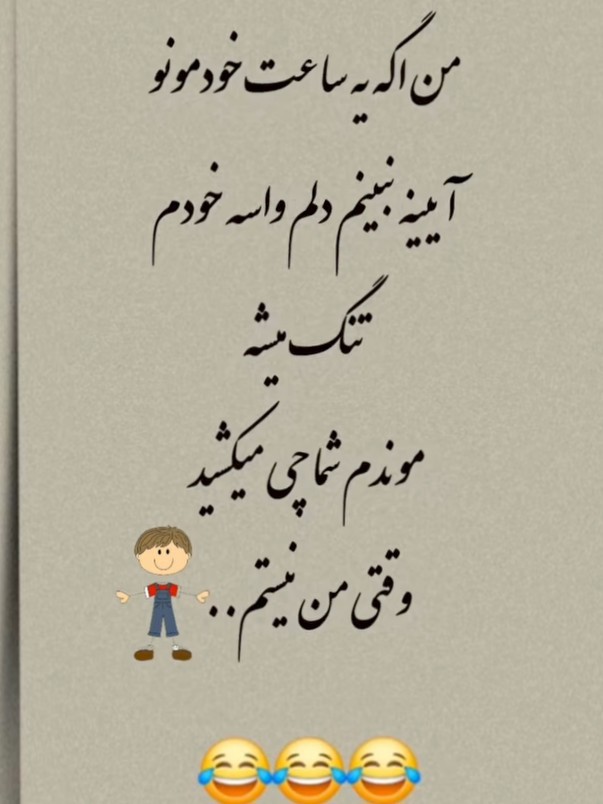 من اگه یه ساعت خودمونو
آیینه نبینم دلم واسه خودم
تنگ میشه
موندم شما چی میکشید
وقتی من نیستم..
😂😂😂